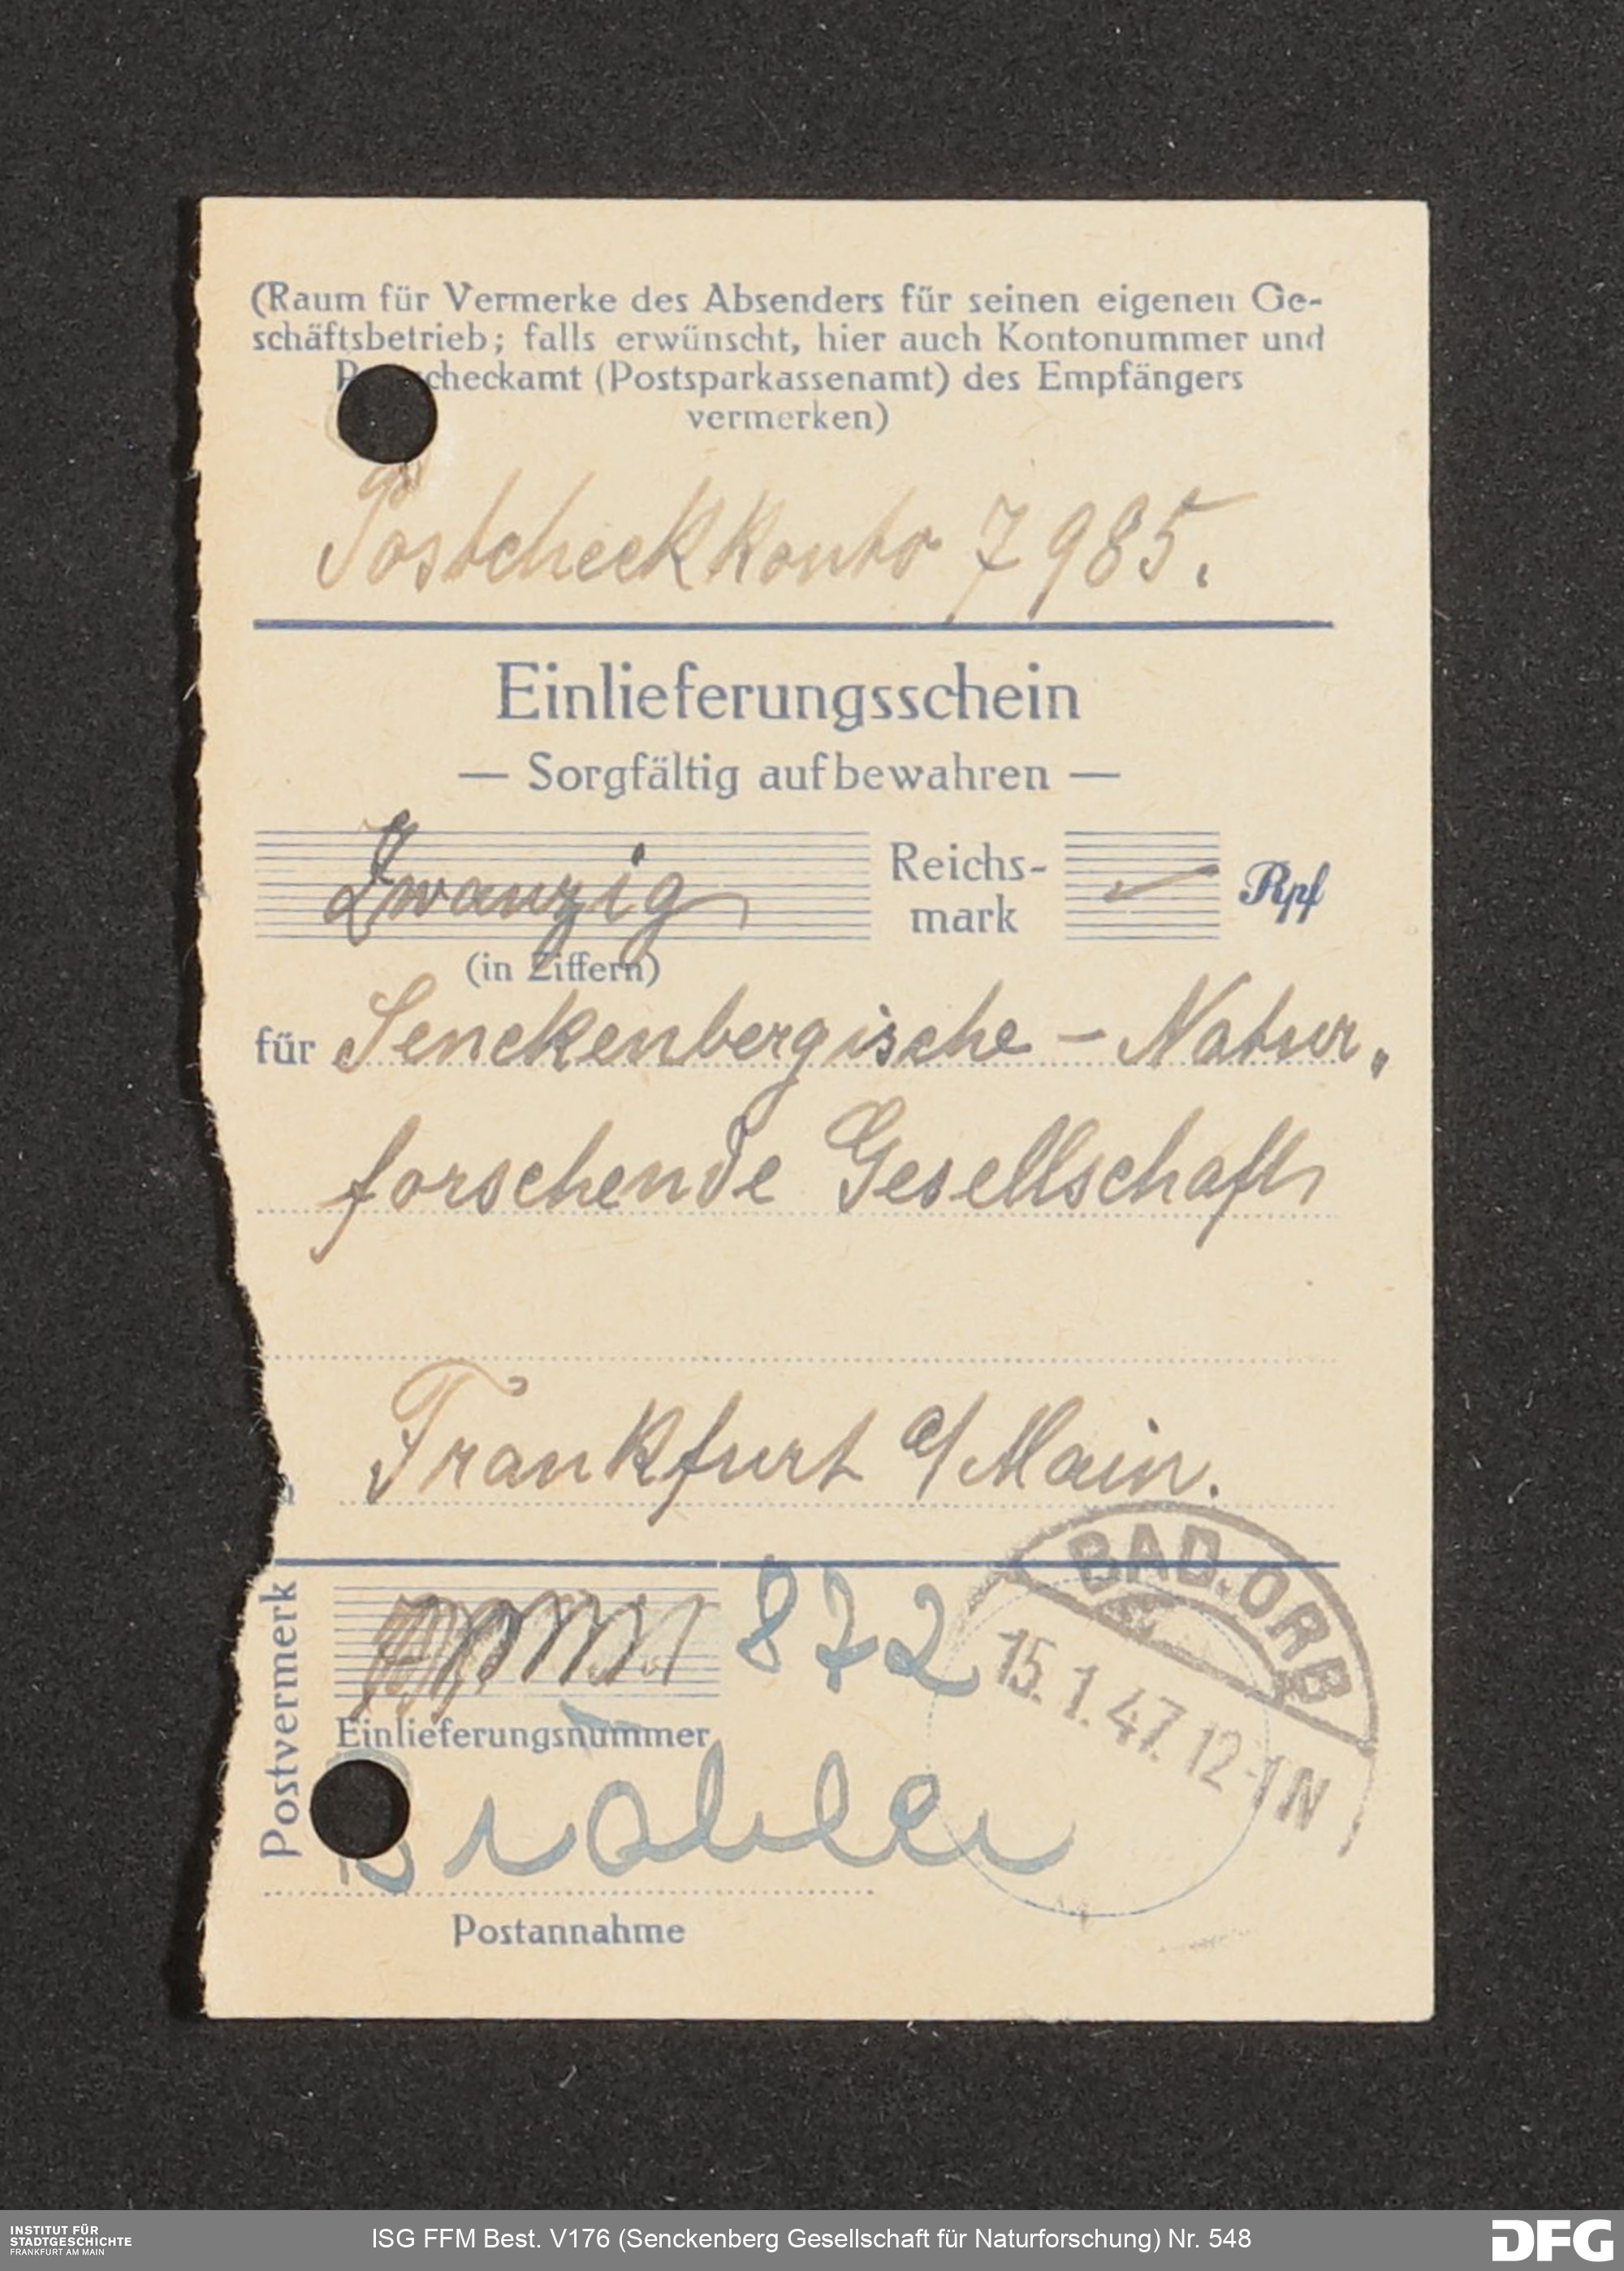 (Raum für Vermerke des Absenders für seinen eigenen Ge-
schäftsbetrieb; falls erwünscht, hier auch Kontonummer und
P scheckamt (Postsparkassenamt) des Empfängers
vermerken)
Postcheckkonto 7985.
Einlieferungsschein
— Sorgfältig aufbewahren —
Zwanzig Reichs-
mark Rpf
(in Ziffern)
für Senckenbergische - Natur„
forschende Gesellschaft
Frankfurt a/Main.
Postvermerk
872
Einlieferungsnummer
BAD ORB
15.1.47.12-1N
Postannahme
INSTITUT FÜR
STADTGESCHICHTE
FRANKFURT AM MAIN
ISG FFM Best. V176 (Senckenberg Gesellschaft für Naturforschung) Nr. 548
DFG